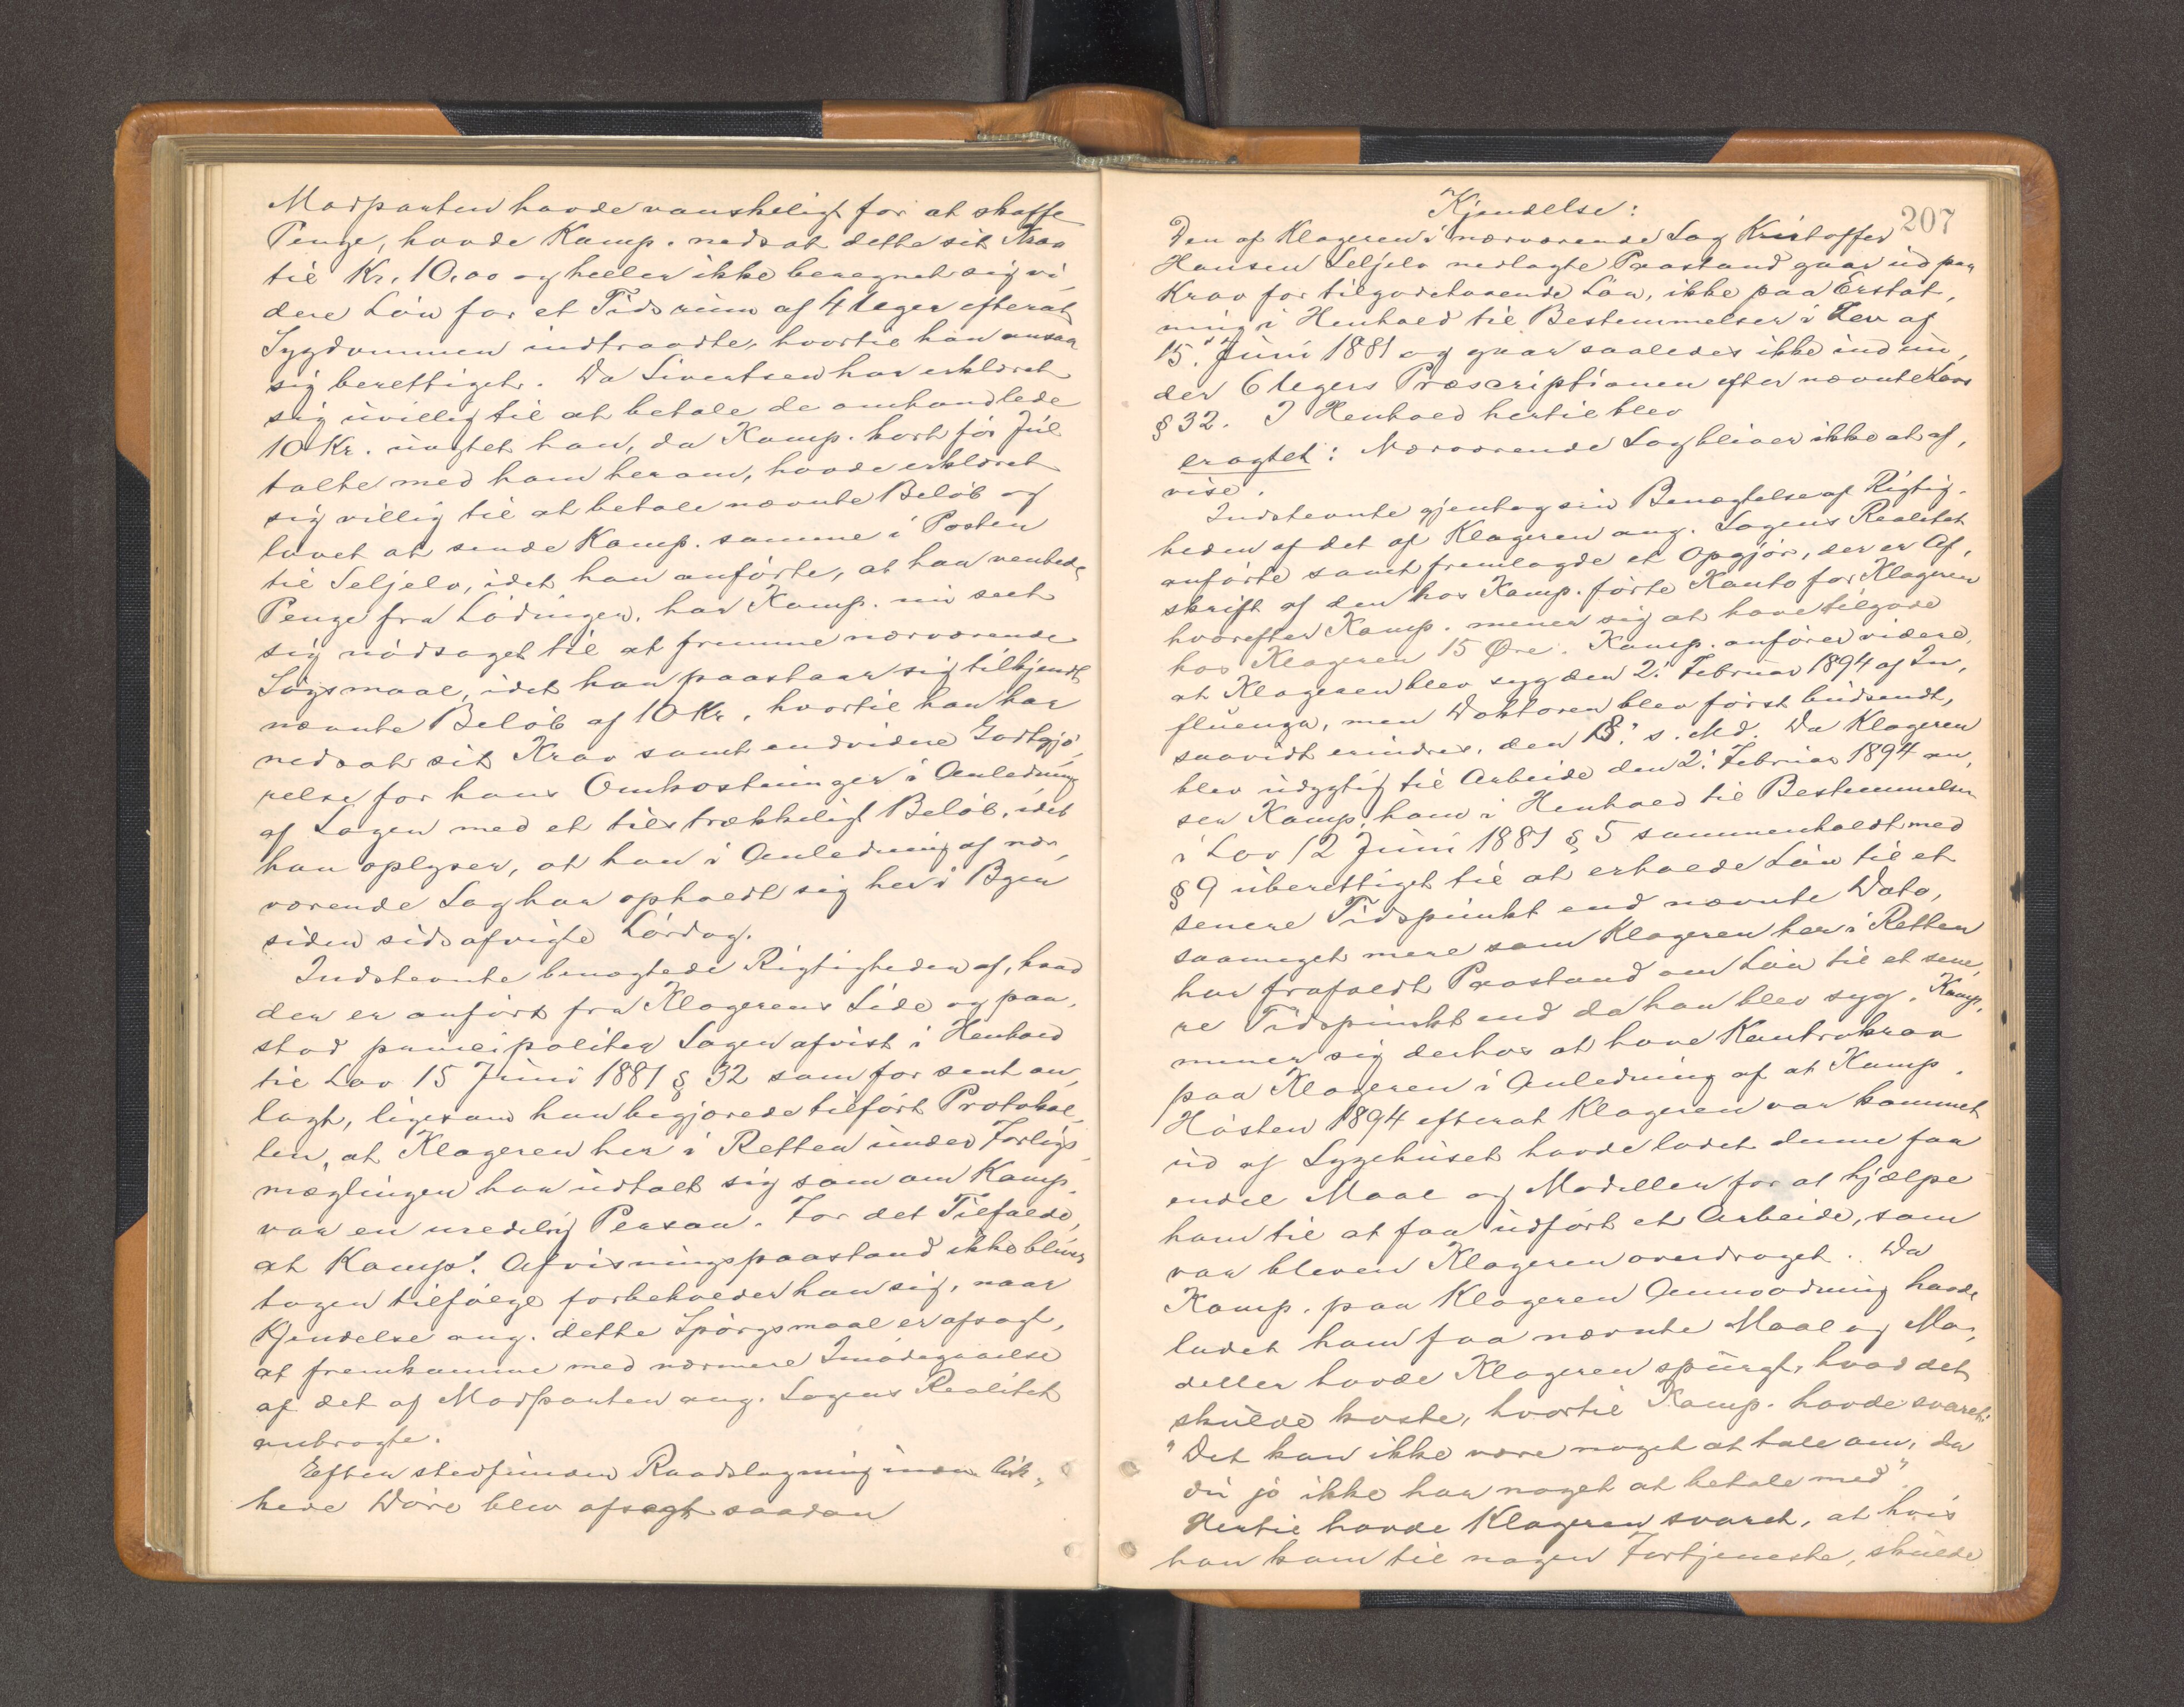 Modparten havde vanskeligt for at skaffe
Penge, havde Komp. nedsat dette sit Krav
til Kr. 10,00 og heller ikke beregnet sig vi-
dere Løn for et Tidsrum af 4 Uger efterat
Sygdommen indtraadte, hvortil han ansaa
sig berettiget. Da Sivertsen har erklæret
sig uvillig til at betale de omhandlede
10 Kr. uagtet han, da Komp. kort før Jul
talte med ham herom, havde erklæret
sig villig til at betale nævnte Beløb og
lovet at sende Komp. samme i Posten
til Seljelv, idet han anførte, at han ventede
Penge fra Lødingen, har Komp. nu seet
sig nødsaget til at fremme nærværende
Søgsmaal, idet han paastaar sig tilkjendt
nævnte Beløb af 10 Kr., hvortil han har
nedsat sit Krav samt endvidere Godtgjø-
relse for hans Omkostninger i Anledning
af Sagen med et tilstrækkeligt Beløb, idet
han oplyser, at han i Anledning af nær-
værende Sag har opholdt sig her i Byen
siden sidsafvigte Lørdag.
Indstevnte benægtede Rigtigheden af, hvad
der er anført fra Klagerens Side og paa-
stod principaliter Sagen afvist i Henhold
til Lov 15 Juni 1881 § 32 som for sent an-
lagt, ligesom han begjærede tilført Protokol-
len, at Klageren her i Retten under Forligs-
mæglingen har udtalt sig som om Komp.
var en uredelig Person. For det Tilfælde,
at Komp's. Afvisningspaastand ikke bliver
tagen tilfølge forbeholder han sig, naar
Kjendelse ang. dette Spørgsmaal er afsagt,
at fremkomme med nærmere Imødegaaelse
af det af Modparten ang. Sagens Realitet
anbragte.
Efter stedfunden Raadslagning inden luk-
kede Døre blev afsagt saadan
207
Kjendelse:
Den af Klageren i nærværende Sag Kristoffer
Hansen Seljelv nedlagte Paastand gaar ud paa
Krav for tilgodehavende Løn, ikke paa Erstat-
ning i Henhold til Bestemmelser i Lov af
15. Juni 1881 og gaar saaledes ikke ind un-
der 6 Ugers Præscriptionen efter nævnte Lovs
§ 32. I Henhold hertil blev
eragtet: Nærværende Sag bliver ikke at af-
vise.
Indstevnte gjentog sin Benægtelse af Rigtig-
heden af det af Klageren ang. Sagens Realitet
anførte samt fremlagde et Opgjør, der er Af-
skrift af den hos Komp. førte Konto for Klageren
hvorefter Komp. mener sig at have tilgode
hos Klageren 15 Øre. Komp. anfører videre,
at Klageren blev syg den 2. Februar 1894 af In-
fluenza, men Doktoren blev først budsendt,
saavidt erindres, den 13. s. Md. Da Klageren
blev udygtig til Arbeide den 2. Februar 1894 an-
ser Komp. ham i Henhold til Bestemmelsen
i Lov 12 Juni 1881 § 5 sammenholdt med
§ 9 uberettiget til at erholde Løn til et
senere Tidspunkt end nævnte Dato,
saameget mere som Klageren her i Retten
har frafaldt Paastand om Løn til et sene-
re Tidspunkt end da han blev syg. Komp.
mener sig derhos at have Kontrakrav
paa Klageren i Anledning af at Komp.
Høsten 1894 efterat Klageren var kommet
ud af Sygehuset havde ladet denne faa
endel Maal og Modeller for at hjælpe
ham til at faa udført et Arbeide, som
var bleven Klageren overdraget. Da
Komp. paa Klageren Anmodning havde
ladet ham faa nævnte Maal og Mo-
deller havde Klageren spurgt, hvad det
skulde koste, hvortil Komp. havde svaret:
"Det kan ikke være noget at tale om, da
du jo ikke har noget at betale med".
Hertil havde Klageren svaret, at hvis
han kom til nogen Fortjeneste, skulde